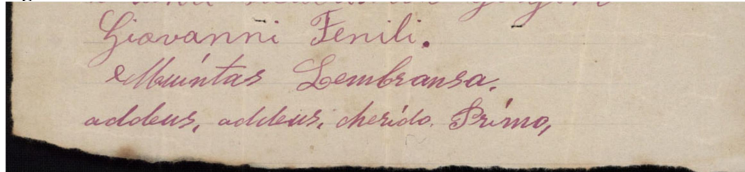 Giovanni Fenili.
Muíntas Lembransa.
addeus, addeus, cherído. Prímo,